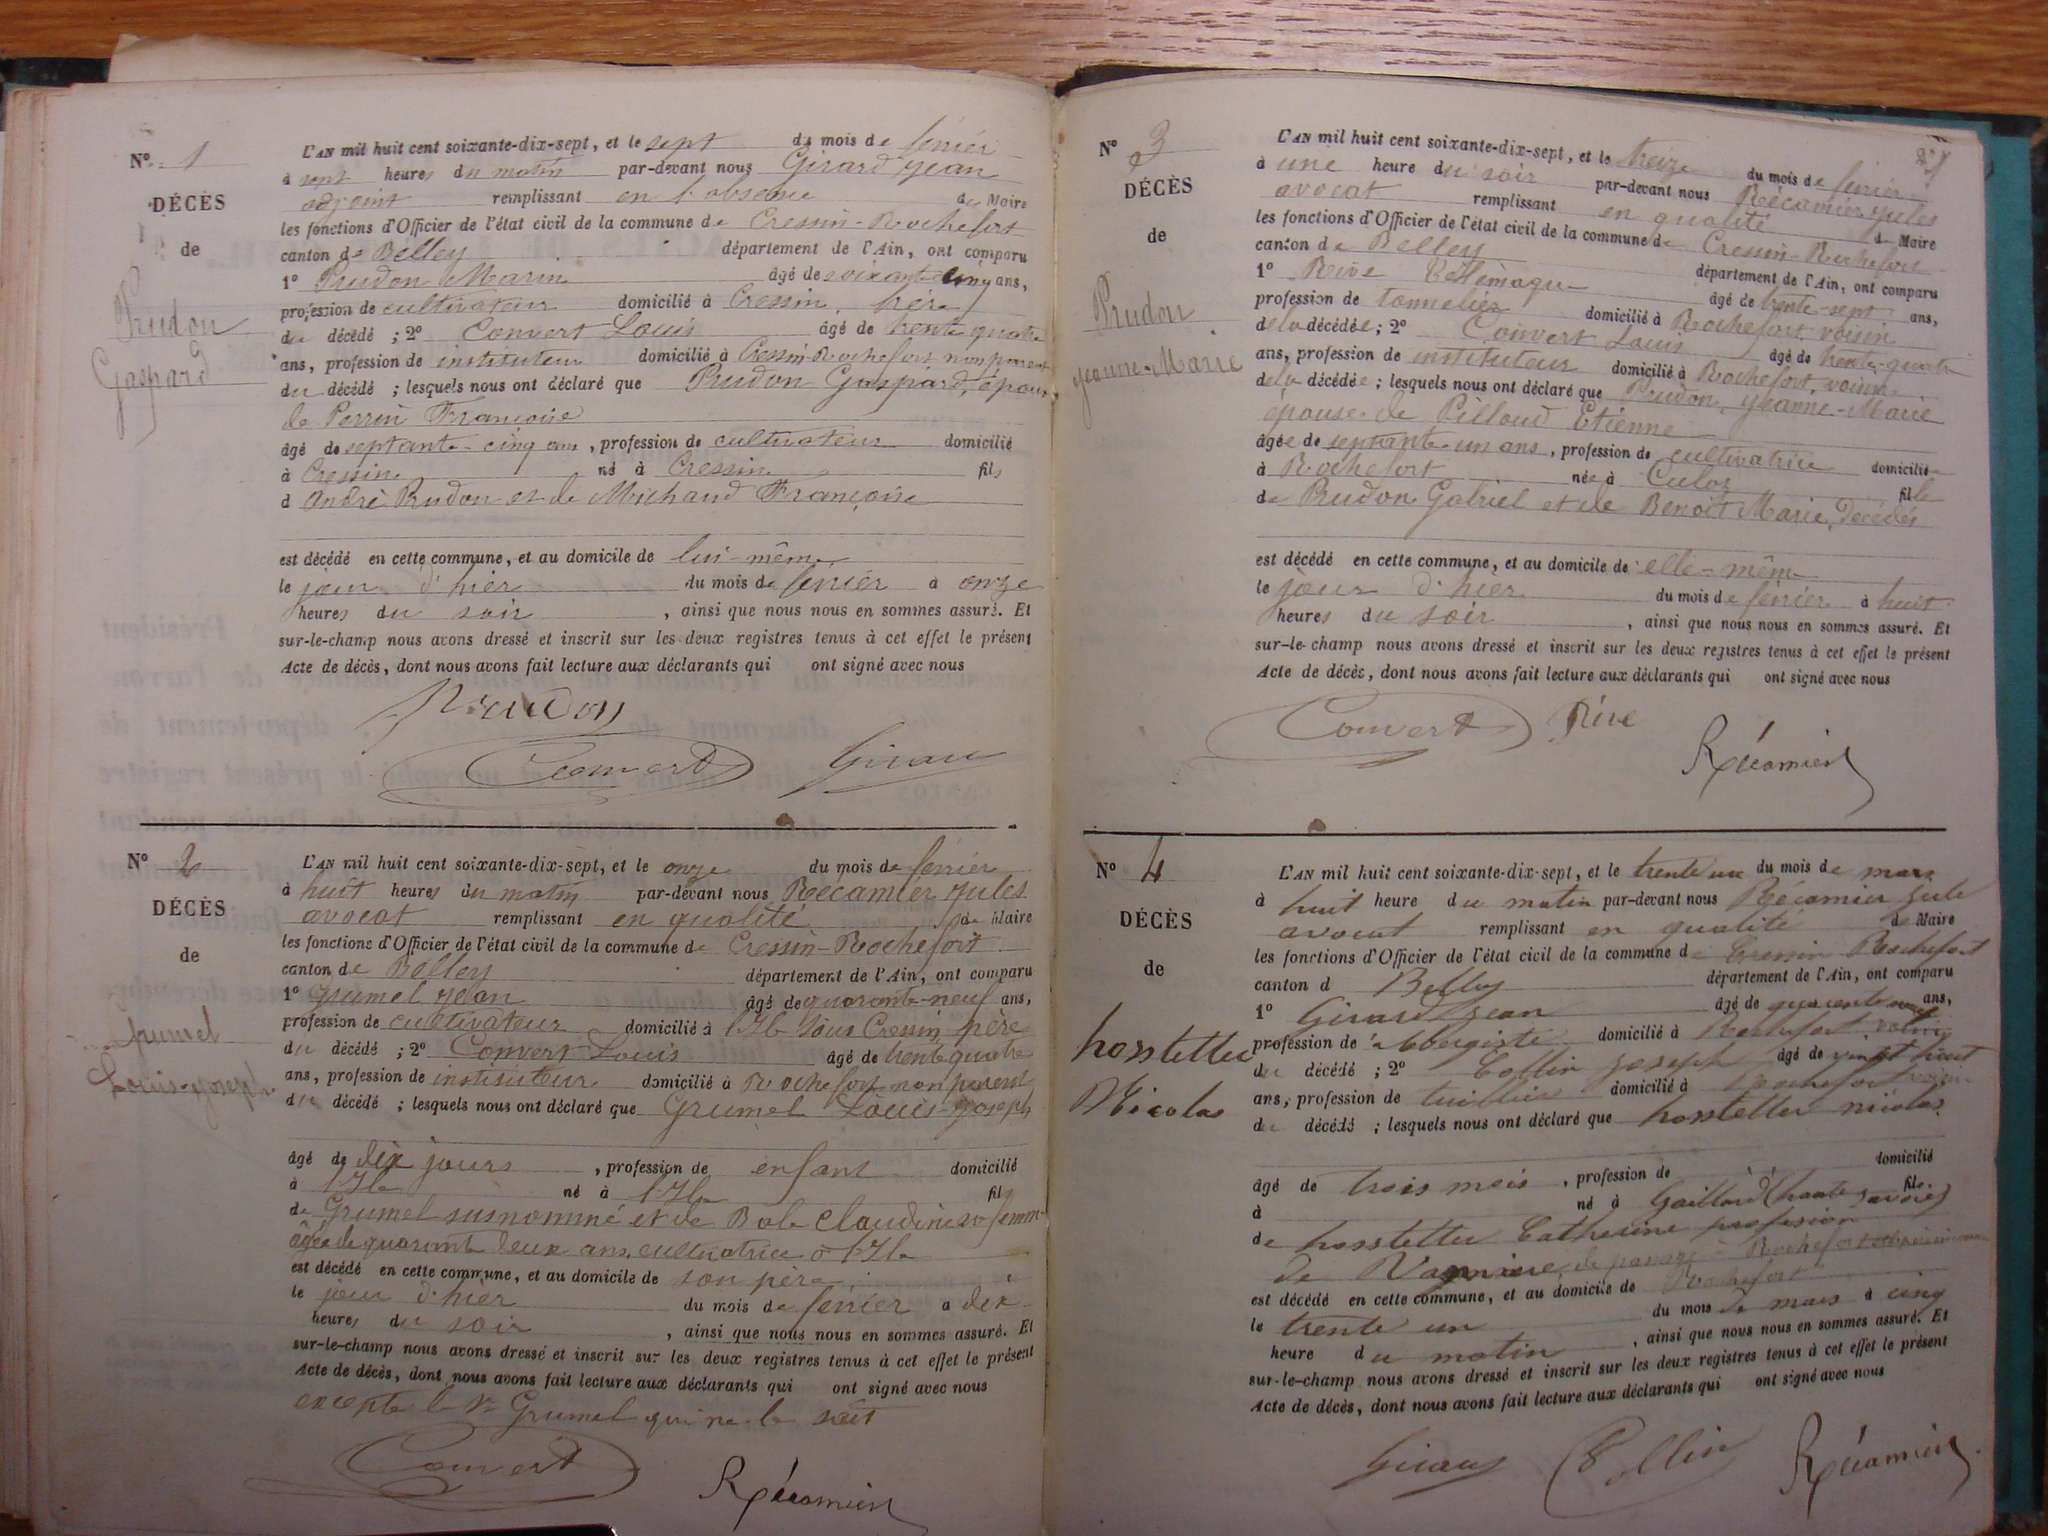 N° 1
DÉCÈS
de
Prudon
Gaspard
L'AN mil huit cent soixante-dix-sept, et le sept du mois de février
à sept heures du matin par-devant nous Girard Jean
adjoint remplissant en l'absence de Maire
les fonctions d'Officier de l'état civil de la commune de Cressin-Rochefort
canton de Belley département de l'Ain, ont comparu
1° Prudon Marin âgé de soixante cinq ans,
profession de cultivateur domicilié à Cressin, frère
du décédé ; 2° Convert Louis âgé de trente quatre
ans, profession de instituteur domicilié à Cressin-Rochefort non parent
du décédé ; lesquels nous ont déclaré que Prudon Gaspard, époux
de Perrin Françoise
âgé de septante-cinq ans, profession de cultivateur domicilié
à Cressin né à Cressin fils
d André Prudon et de Michaud Françoise
est décédé en cette commune, et au domicile de lui-même
le jour d'hier du mois de février à onze
heures du soir, ainsi que nous nous en sommes assuré. Et
sur-le-champ nous avons dressé et inscrit sur les deux registres tenus à cet effet le présent
Acte de décès, dont nous avons fait lecture aux déclarants qui ont signé avec nous
Prudon
Convert Girard
N° 2
DÉCÈS
de
Grumel
Louis-Joseph
L'AN mil huit cent soixante-dix-sept, et le onze du mois de février
à huit heures du matin par-devant nous Récamier Jules
avocat remplissant en qualité de Maire
les fonctions d'Officier de l'état civil de la commune de Cressin-Rochefort
canton de Belley département de l'Ain, ont comparu
1° Grumel Jean âgé de quarante-neuf ans,
profession de cultivateur domicilié à sous Cressin, père
du décédé ; 2° Convert Louis âgé de trente quatre
ans, profession de instituteur domicilié à Rochefort non parent
du décédé ; lesquels nous ont déclaré que Grumel Louis-Joseph
âgé de dix jours, profession de enfant domicilié
à né à fil
de Grumel susnommé et de Claudine sa femme
âgée de quarante deux ans, cultivatrice à
est décédé en cette commune, et au domicile de son père
le jour d'hier du mois de février à dix
heures du soir, ainsi que nous nous en sommes assuré. Et
sur-le-champ nous avons dressé et inscrit sur les deux registres tenus à cet effet le présent
Acte de décès, dont nous avons fait lecture aux déclarants qui ont signé avec nous
excepté le Sr Grumel qui ne le sait
Convert Récamier
27
N° 3
DÉCÈS
de
Prudon
Jeanne-Marie
L'AN mil huit cent soixante-dix-sept, et le treize du mois de février
à une heure du soir par-devant nous Récamier Jules
avocat remplissant en qualité de Maire
les fonctions d'Officier de l'état civil de la commune de Cressin-Rochefort
canton de Belley département de l'Ain, ont comparu
1° Rive âgé de trente-sept ans,
profession de tonnelier domicilié à Rochefort voisin
de la décédée ; 2° Convert Louis âgé de trente-quatre
ans, profession de instituteur domicilié à Rochefort, voisin
de la décédée ; lesquels nous ont déclaré que Prudon, Jeanne-Marie
épouse de Pilloud Etienne
âgée de septante-un ans, profession de cultivatrice domicilié
à Rochefort née à Culoz fille
de Prudon Gabriel et de Benoit Marie, décédés
est décédé en cette commune, et au domicile de elle-même
le jour d'hier du mois de février à huit
heures du soir, ainsi que nous nous en sommes assuré. Et
sur-le-champ nous avons dressé et inscrit sur les deux registres tenus à cet effet le présent
Acte de décès, dont nous avons fait lecture aux déclarants qui ont signé avec nous
Convert Rive
Récamier
N° 4
DÉCÈS
de
hosstetter
Nicolas
L'AN mil huit cent soixante-dix-sept, et le trente un du mois de mars
à huit heure du matin par-devant nous Récamier Jule
avocat remplissant en qualité de Maire
les fonctions d'Officier de l'état civil de la commune de Cressin Rochefort
canton d Belley département de l'Ain, ont comparu
1° Girard Jean âgé de quarente ans,
profession de domicilié à Rochefort voisin
du décédé ; 2° Collin Joseph âgé de vingt huit
ans, profession de domicilié à Rochefort voisin
du décédé ; lesquels nous ont déclaré que hosstetter nicolas
âgé de trois mois, profession de domicilié
à né à Gaillard (haute savoie) fils
de hosstetter Catherine profession
de de passage à Rochefort
est décédé en cette commune, et au domicile de Rochefort
le trente un du mois de mars à cinq
heure du matin, ainsi que nous nous en sommes assuré. Et
sur-le-champ nous avons dressé et inscrit sur les deux registres tenus à cet effet le présent
Acte de décès, dont nous avons fait lecture aux déclarants qui ont signé avec nous
Girard Collin Récamier